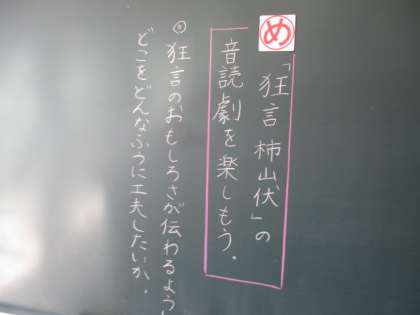 め
「狂言 柿山伏」の
音読劇を楽しもう。
◎狂言のおもしろさが伝わるように
どこをどんなふうに工夫したいか。